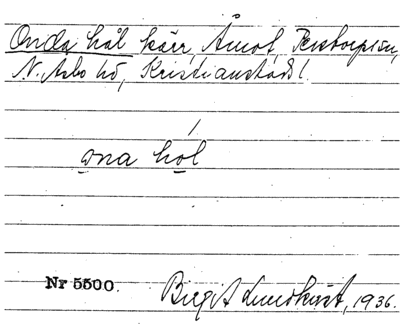 Onda hål kärr, Åmot, Perstorps sn,
N. Åsbo hd, Kristianstads l.
ona hol
Nr 5500. Birgit Lundkvist, 1936.